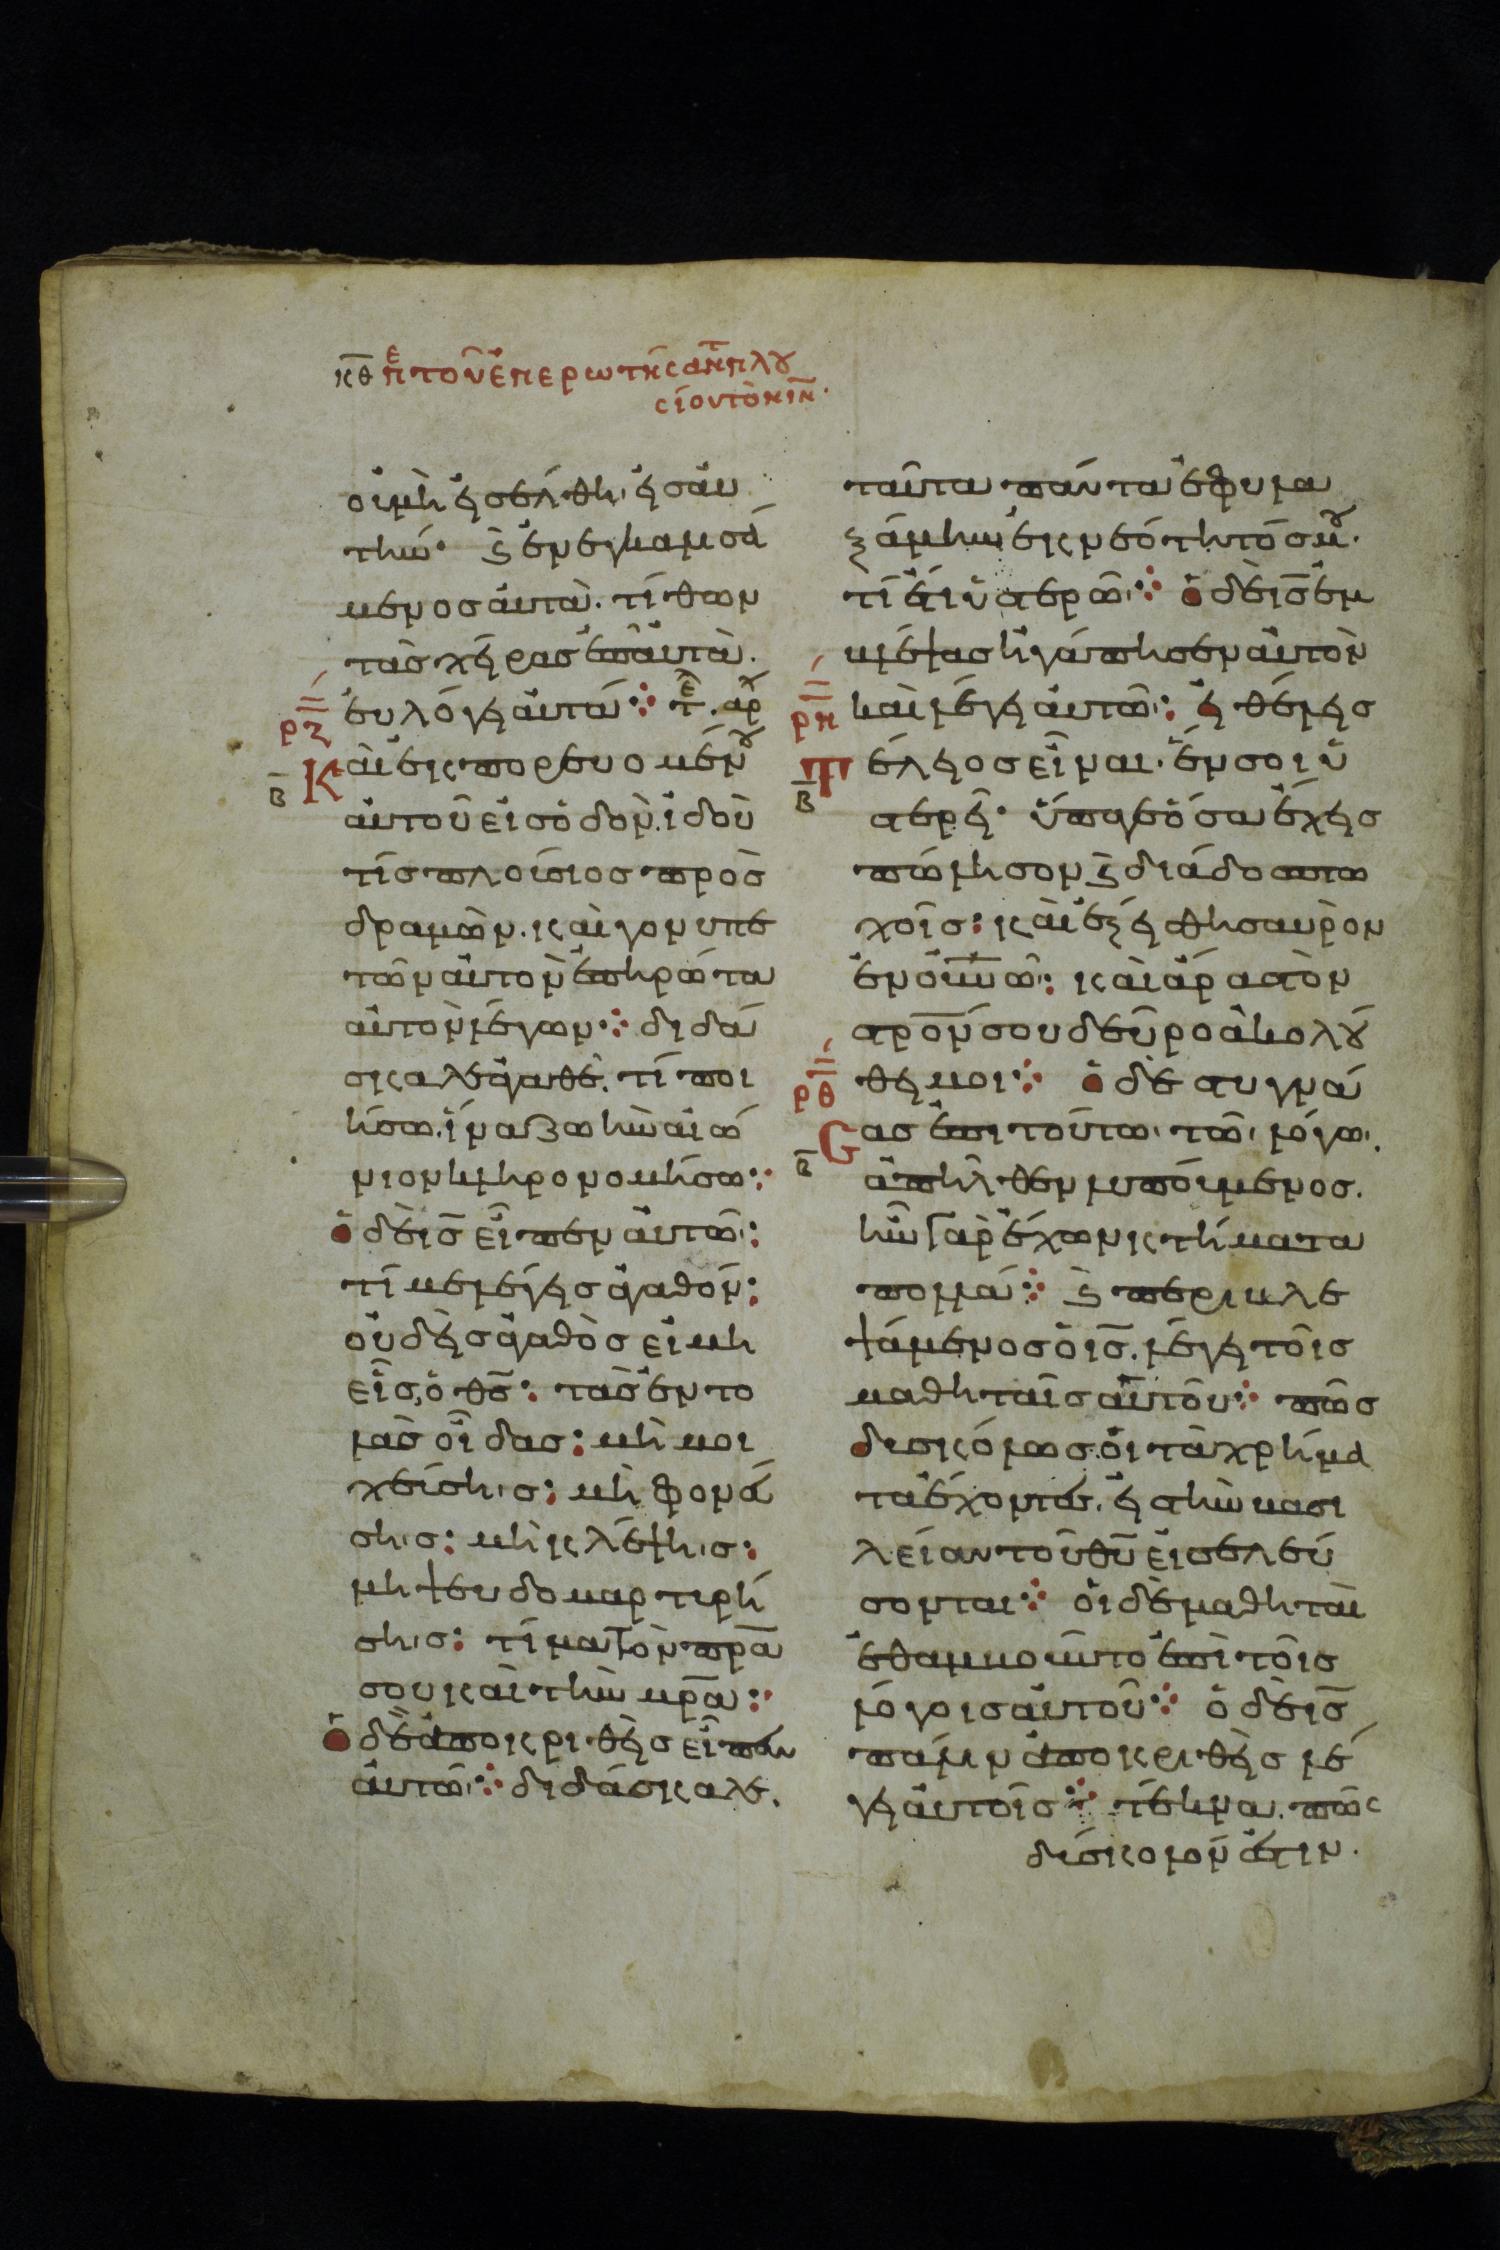 κθ πε τοῦ ἐπερωτήσαντ πλου
σίου τὸν ιν̅
οὐ μὴ ἠσέλθη ἠσ αὐ
τήν· ϗ ἐνεγκαμσά
μενος αὐτὰ· τίθων
τὰς χῆρας ἐπ αὐτὰ.
εὐλόγη αὐτά⁘ τε̅. αρχ
ρζ
β
Καὶ ἐκπορευομένου
αὐτοῦ εἰσ ὁδὸν. ἰδοὺ
τίσ πλοίσιοσ προσ
δραμὼν. καὶ γονυπε
τῶν αὐτὸν ἐπηρώτα
αὐτὸν λέγων⁘ διδά
σκαλε ἀγαθὲ. τί ποι
ήσω. ἵνα ζωὴν αἰώ
νιον κληρονομήσω⁘
ὁ δὲ ισ̅ εἶπεν αὐτῶ:
τί με λέγησ ἀγαθόν:
οὐδῆσ ἀγαθὸσ εἰ μη
εἷσ, ὁ θσ̅: τὰσ ἐντο
λὰσ οἶδασ: μὴ μοι
χεύσησ: μὴ φονεύ
σησ: μὴ κλέψησ:
μὴ ψευδομαρτιρή
σησ: τίμα τὸν πρ̅α
σου καὶ τὴν μρ̅α⁘
ὁ δὲ ἀποκριθὴσ εἶπεν
αὐτῶ⁘ διδάσκαλε.
ταῦτα πάντα ἐφυλα
ξάμην ἐκ νεότητόσ μου.
τί ἔτι ὑστερῶ⁘ ὁ δὲ ισ̅ ἐμ
βλέψασ ἠγάπησεν αὐτὸν
ρη
καὶ λέγη αὐτῶ: ἠ θέλησ
β
Τέλησ εἶναι. ἕν σοι ὑ
στερῆ· ὕπαγε ὅσα ἔχησ
πώλησον ϗ διάδοσ πτω
χοῖσ: καὶ ἕξη θησαυρὸν
ἐν οὐνῶ: καὶ ἄρασ τὸν
στρο̅ν σου δεῦρο ἀκολού
ρθ
θη μοι⁘ ὁ δὲ στυγνά
β
Cασ ἐπι τούτω τῶ λόγω.
ἀπῆλθεν λυπούμενοσ.
ἦν γὰρ ἔχων κτήματα
πολλά⁘ ϗ περιβλε
ψάμενοσ ὁ ισ̅. λέγη τοῖσ
μαθηταῖσ αὐτοῦ⁘ πῶσ
δισκόλωσ οἱ τὰ χρήμα
τα ἔχοντεσ. ἠσ τὴν βασι
λείαν τοῦ θυ̅ εἰσελεύ
σονται⁘ οἱ δὲ μαθηταὶ
ἐθαμβοῦντο ἐπὶ τοῖσ
λόγοισ αὐτοῦ⁘ ὁ δὲ ισ̅
πάλιν ἀποκριθὴσ λέ
γη αὐτοῖσ⁘ τέκνα. πῶς
δίσκολόν ἐστιν.